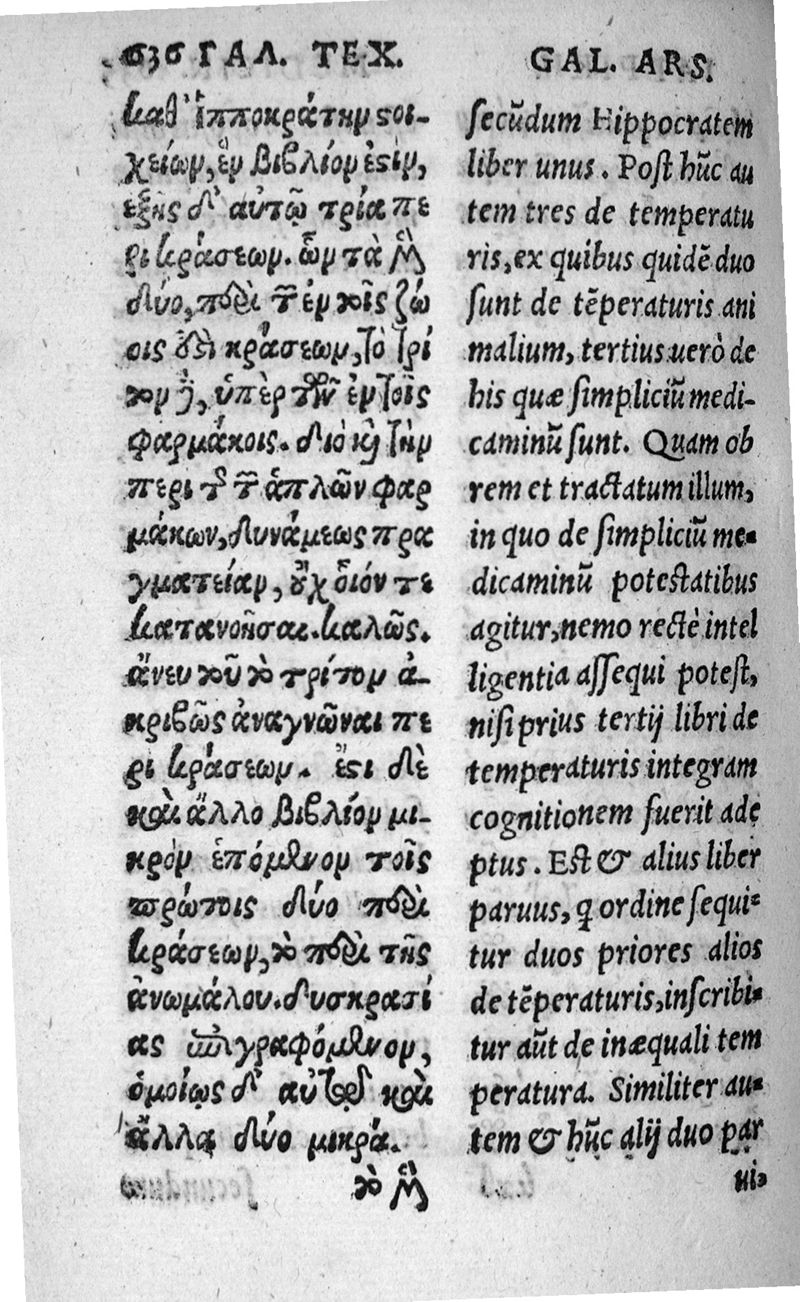 236 ΓΑΛ. ΤΕΧ.
καθ' ἱπποκράτην ϛοι-
χείων, ἓν βιβλίον ἐϛίν,
εξῆς δ' αὐτῷ τρία πε
ρι κράσεων. ὧν τὰ μὲν
δύο, περὶ τῶν ἐν τοῖς ζώ
οις ἐϛὶ κράσεων, τὸ τρί
τον δὲ, ὑπὲρ τῶν ἐν τοῖς
φαρμάκοις. διὸ καὶ τὴν
περι τῆς τῶν ἁπλῶν φαρ
μάκων, δυνάμεως πρα
γματείαν, οὐχ οἷόν τε
κατανοῆσαι καλῶς.
ἄνευ τοῦ τὸ τρίτον ἀ-
κριβῶς ἀναγνῶναι πε
ρι κράσεων. ἔϛι δὲ
καὶ ἄλλο βιβλίον μι-
κρὸν ἑπόμενον τοῖς
πρώτοις δύο περὶ
κράσεων, τὸ περὶ τῆς
ἀνωμάλου δυσκρασί
ας ἐπιγραφόμενον,
ὁμοίως δ' αὐτοῖς καὶ
ἄλλα δύο μικρά.
τὸ μὲν
GAL. ARS.
secũdum Hippocratem
liber unus. Post hũc au
tem tres de temperatu
ris, ex quibus quidẽ duo
sunt de tẽperaturis ani
malium, tertius uerò de
his quæ simpliciũ medi-
caminũ sunt. Quam ob
rem et tractatum illum,
in quo de simpliciũ me-
dicaminũ potestatibus
agitur, nemo rectè intel
ligentia assequi potest,
nisi prius tertij libri de
temperaturis integram
cognitionem fuerit ade
ptus. Est & alius liber
paruus, q ordine sequi-
tur duos priores alios
de tẽperaturis, inscribi-
tur aũt de inæquali tem
peratura. Similiter au-
tem & hũc alij duo par
ui,